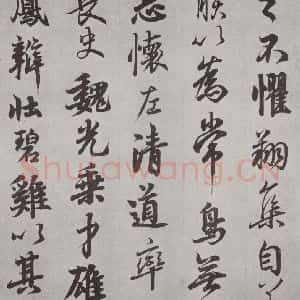 之不懼翔集自
朕以為常鳥無
志懷左清道率
長史魏光乘才雄
鳳辯壯碧雞以其
Shufawang.CN